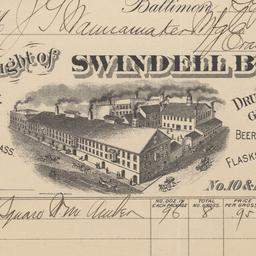 Baltimore,
J G Wannamaker Mfg Co
ught of SWINDELL B
DRU
G
BEER
ASS
FLASKS
No. 10 &
NO. DOZ. IN EACH PACKAGE TOTAL NO. GROSS. PRICE PER GROSS
Square Am Amber 96 8 95